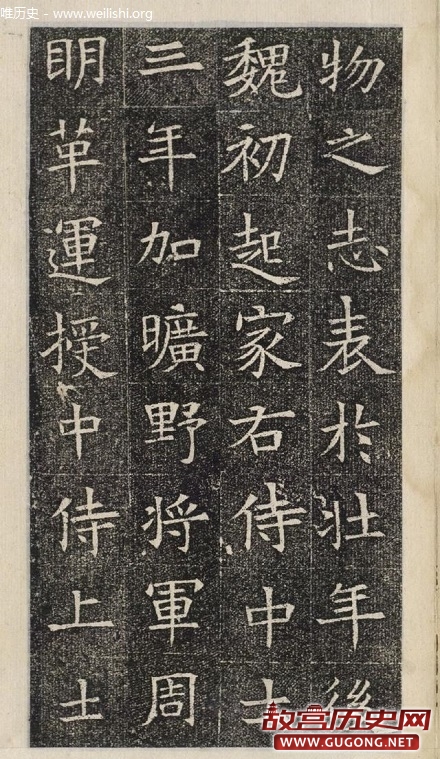 唯历史 - www.weilishi.org
物之志表於壯年後
魏初起家右侍中士
三年加曠野将軍周
眀革運授中侍上士
故宫历史网
WWW.GUGONG.NET